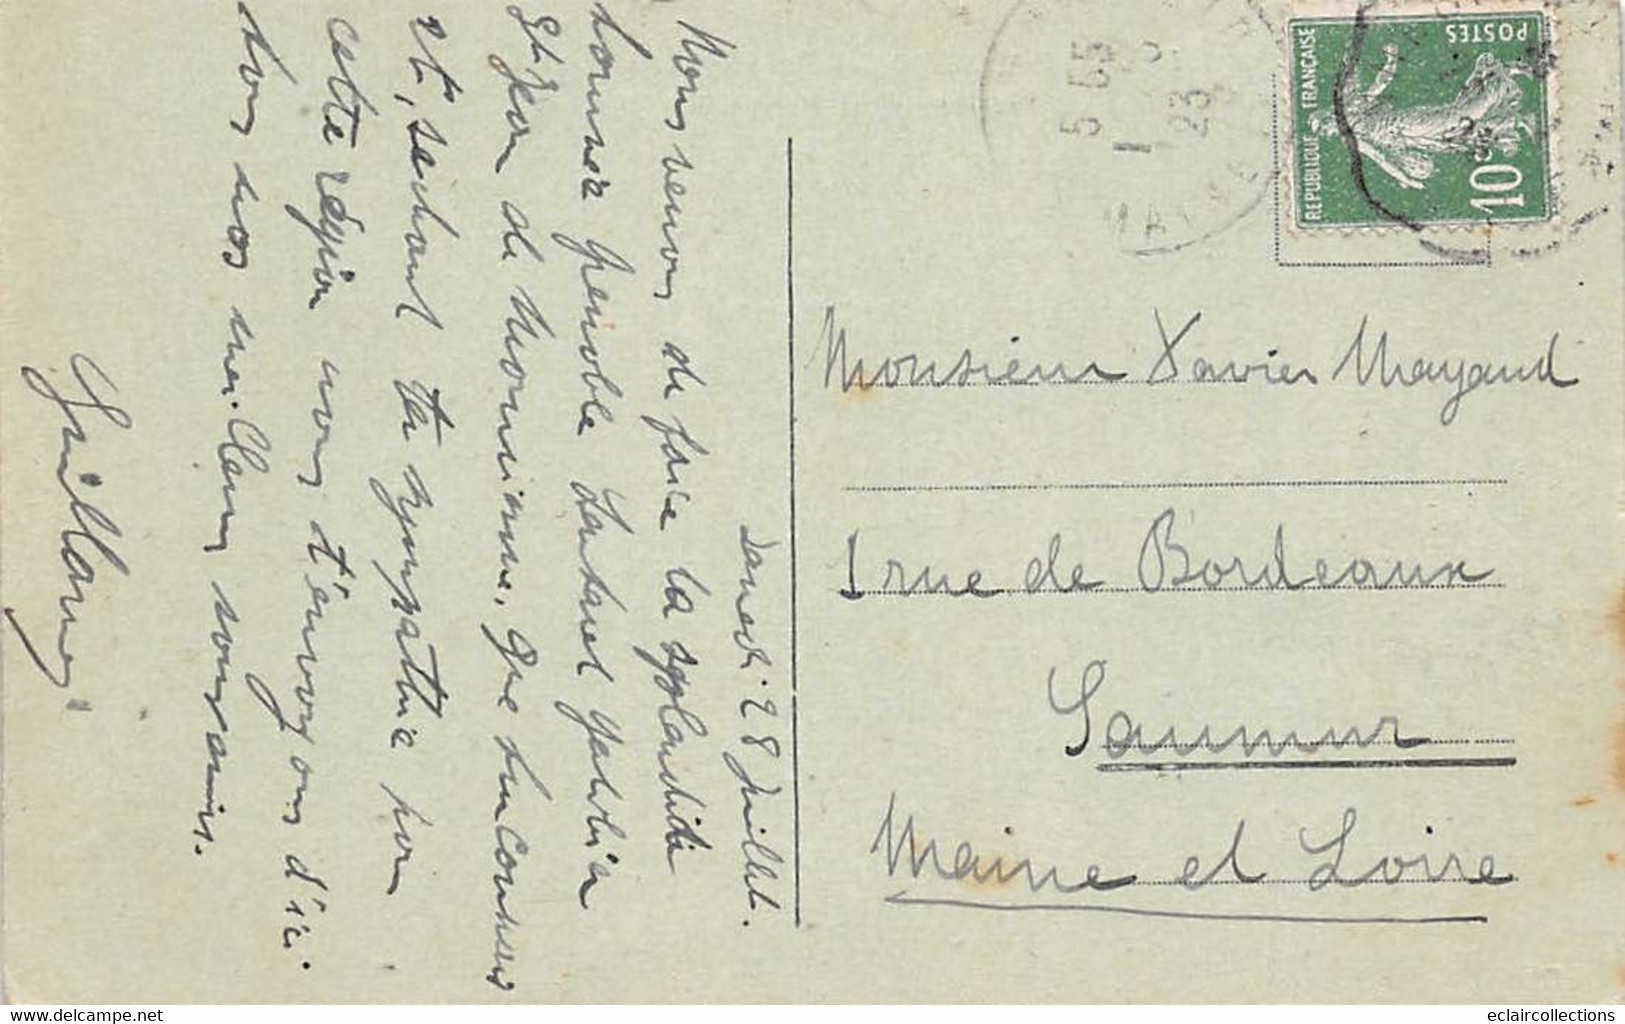 Samedi 28 Juillet.
Nous venons de faire la splendide
tournée Grenoble Lautaret Galibier
St Jean de Maurienne. Que tu connais
et, sachant ta sympathie pour
cette région nous t'envoyons d'ici
tous nos meilleurs souvenirs.
Guillaume
REPUBLIQUE FRANÇAISE
POSTES
10c
5 55
1
23
Monsieur Xavier Mayaud
1 rue de Bordeaux
Saumur
Maine et Loire
www.delcampe.net
eclaircollections